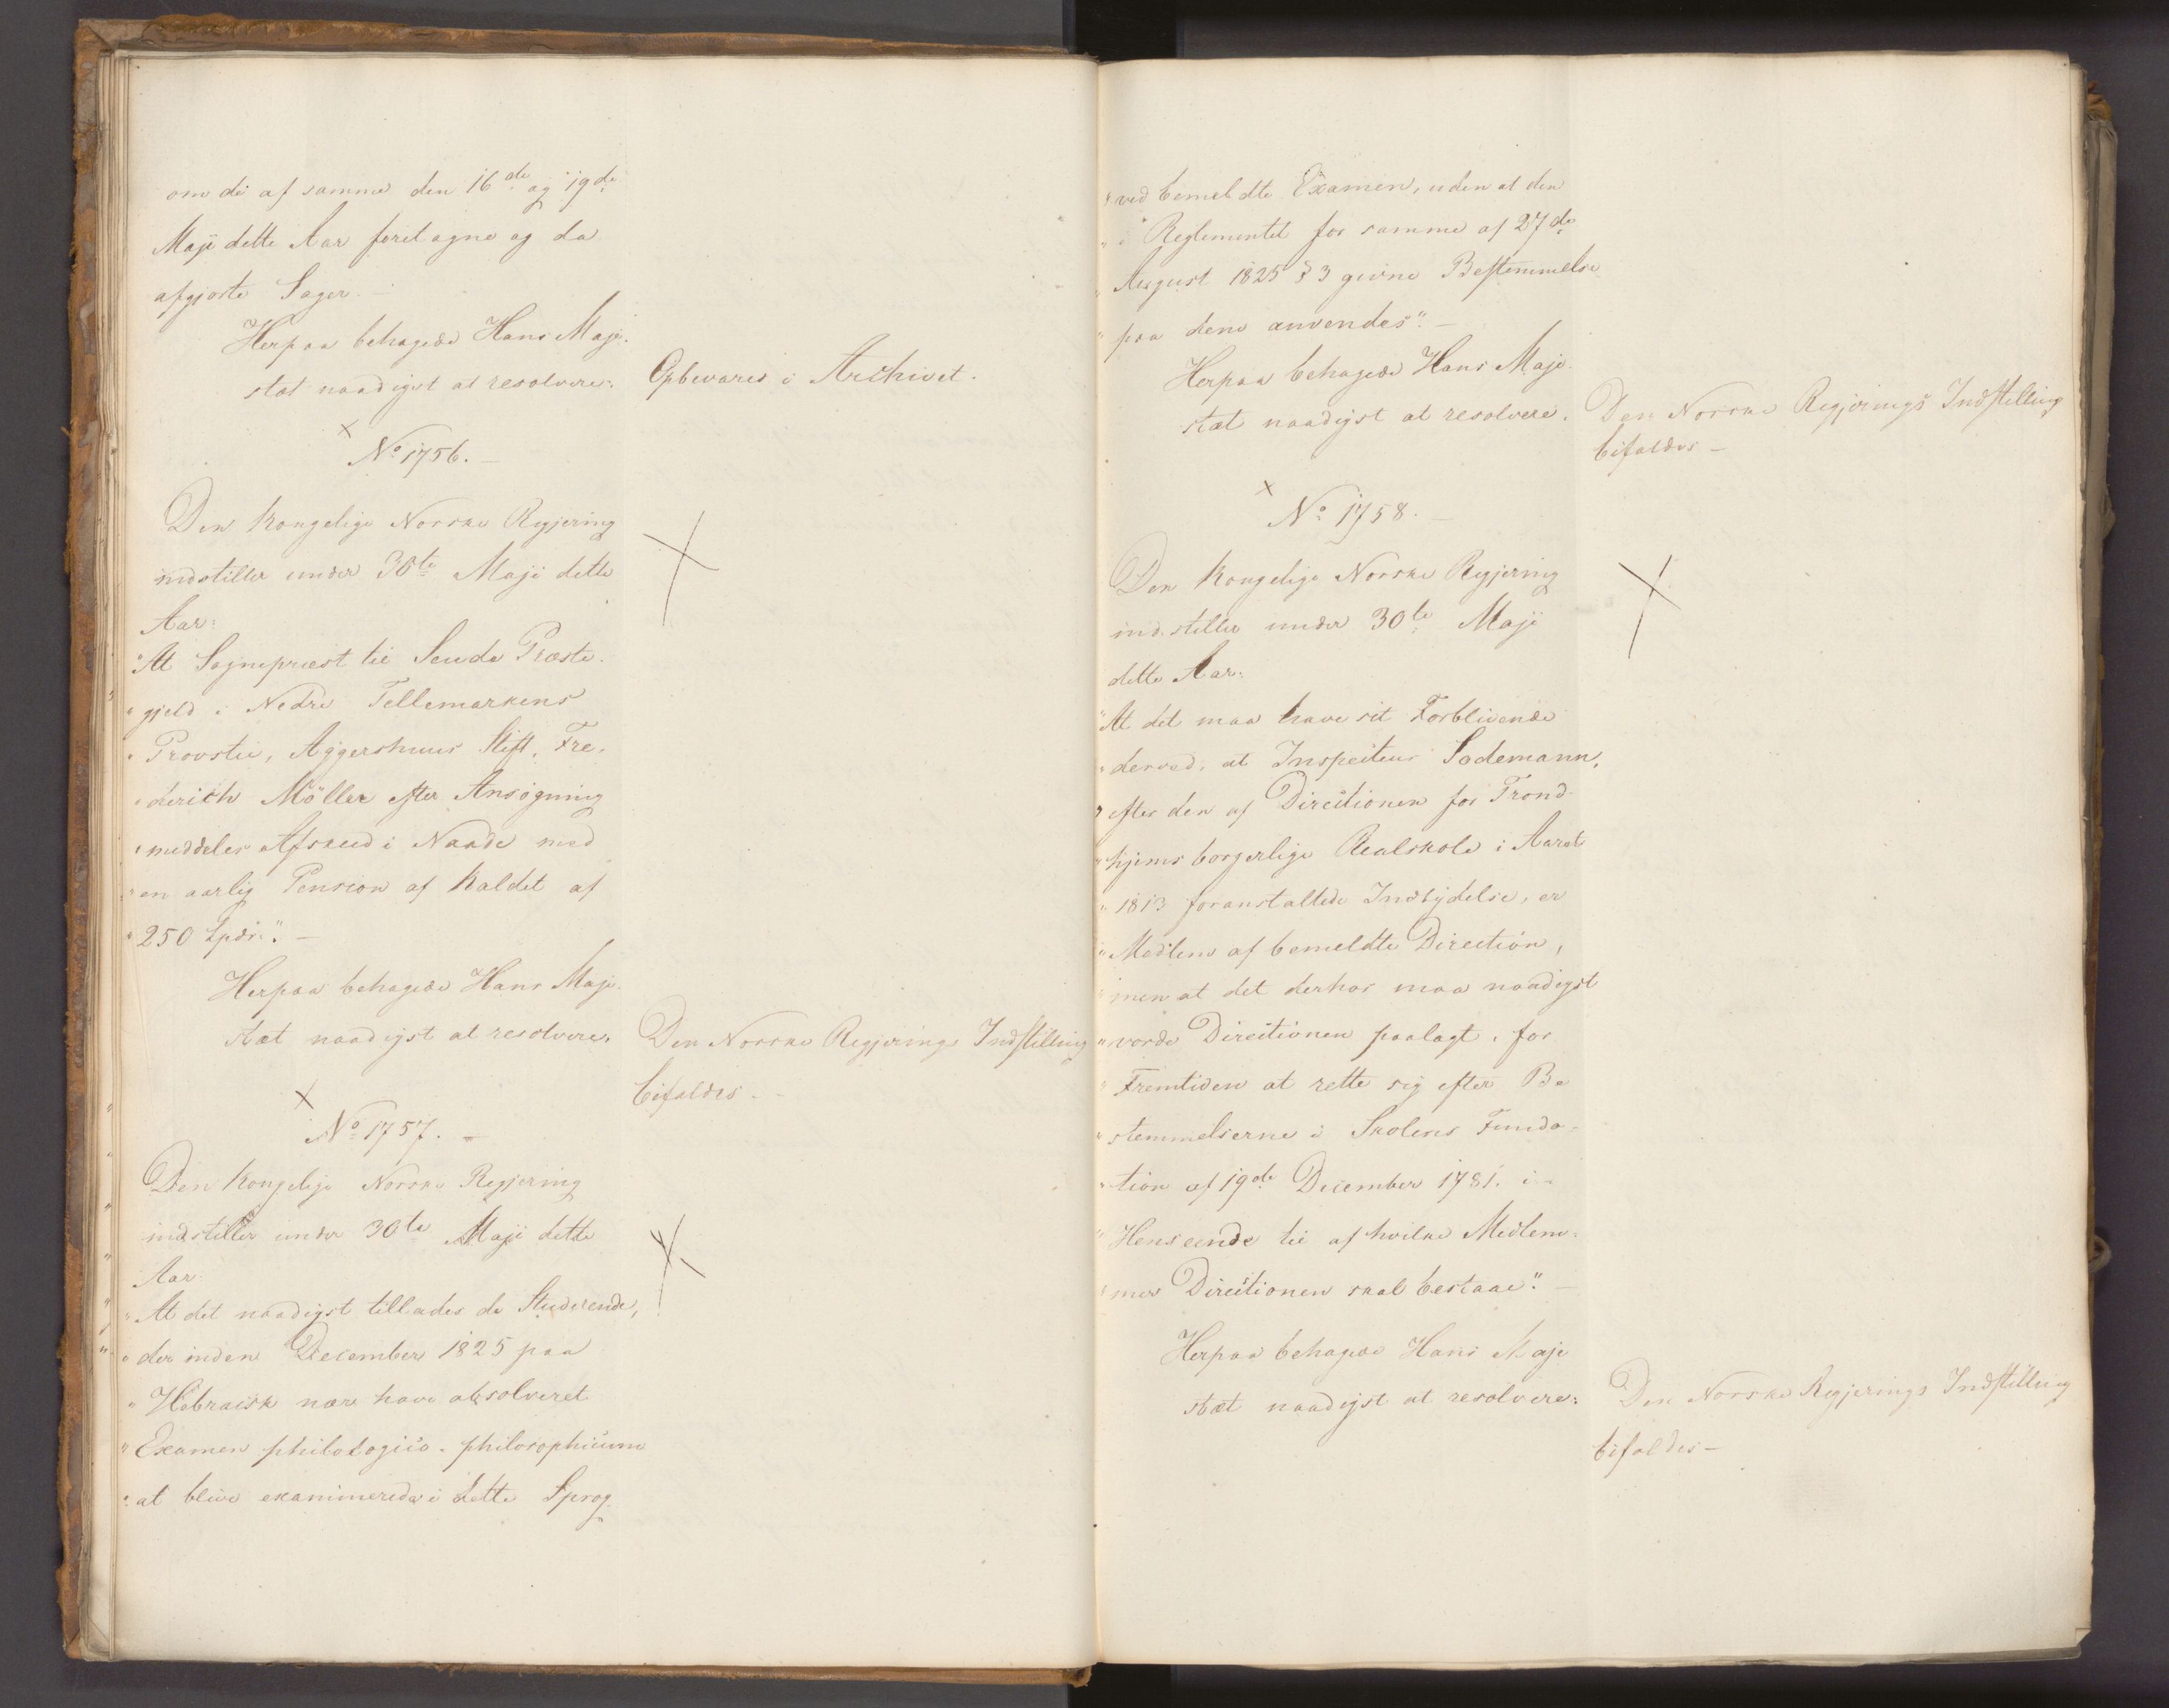 om de af samme den 16de og 19de
Maji dette Aar foretagne og da
afgjorte Sager.—
Herpaa behagede Hans Maje-
stæt naadigst at resolvere:
Opbevares i Archivet.
No 1756.—
Den Kongelige Norske Regjering
indstiller under 30te Maji dette
Aar:
"At Sognepræst til Saude Præste-
"gjeld i Nedre Tellemarkens
"Provstie, Aggershuus Stift, Fre-
"derich Möller efter Ansøgning
"meddeles Afskeed i Naade med
"en aarlig Pension af Kaldet af
"250 Spdr.".—
Herpaa behagede Hans Maje-
stæt naadigst at resolvere,
Den Norske Regjerings Indstilling
bifaldes.—
No 1757.—
Den Kongelige Norske Regjering
indstiller under 30te Maji dette
Aar:
"At det naadigst tillades de Studerende,
"der inden December 1825 paa
"Hebraisk nær have absolveret
"Examen philologico-philosophicum
"at blive examinerede i dette Sprog
"ved bemeldte Examen, uden at den
"i Reglementet for samme af 27de
"August 1825 § 3 givne Bestemmelse
"paa dem anvendes".—
Herpaa behagede Hans Maje-
stæt naadigst at resolvere.
Den Norske Regjerings Indstilling
bifaldes—
No 1758.—
Den Kongelige Norske Regjering
indstiller under 30te Maji
dette Aar:
"At det maa have sit Forblivende
"derved, at Inspecteur Sodemann,
"efter den af Directionen for Trond-
"hjems borgerlige Realskole i Aaret
"1813 foranstaltede Indbydelse, er
"Medlem af bemeldte Direction,
"men at det derhos maa naadigst
"vorde Directionen paalagt, for
"Fremtiden at rette sig efter Be
"stemmelserne i Skolens Funda-
"tion af 19de December 1781. i
"Henseende til af hvilke Medlem-
"mer Directionen skal bestaae".—
Herpaa behagede Hans Maje
stæt naadigst at resolvere:
Den Norske Regjerings Indstilling
bifaldes—